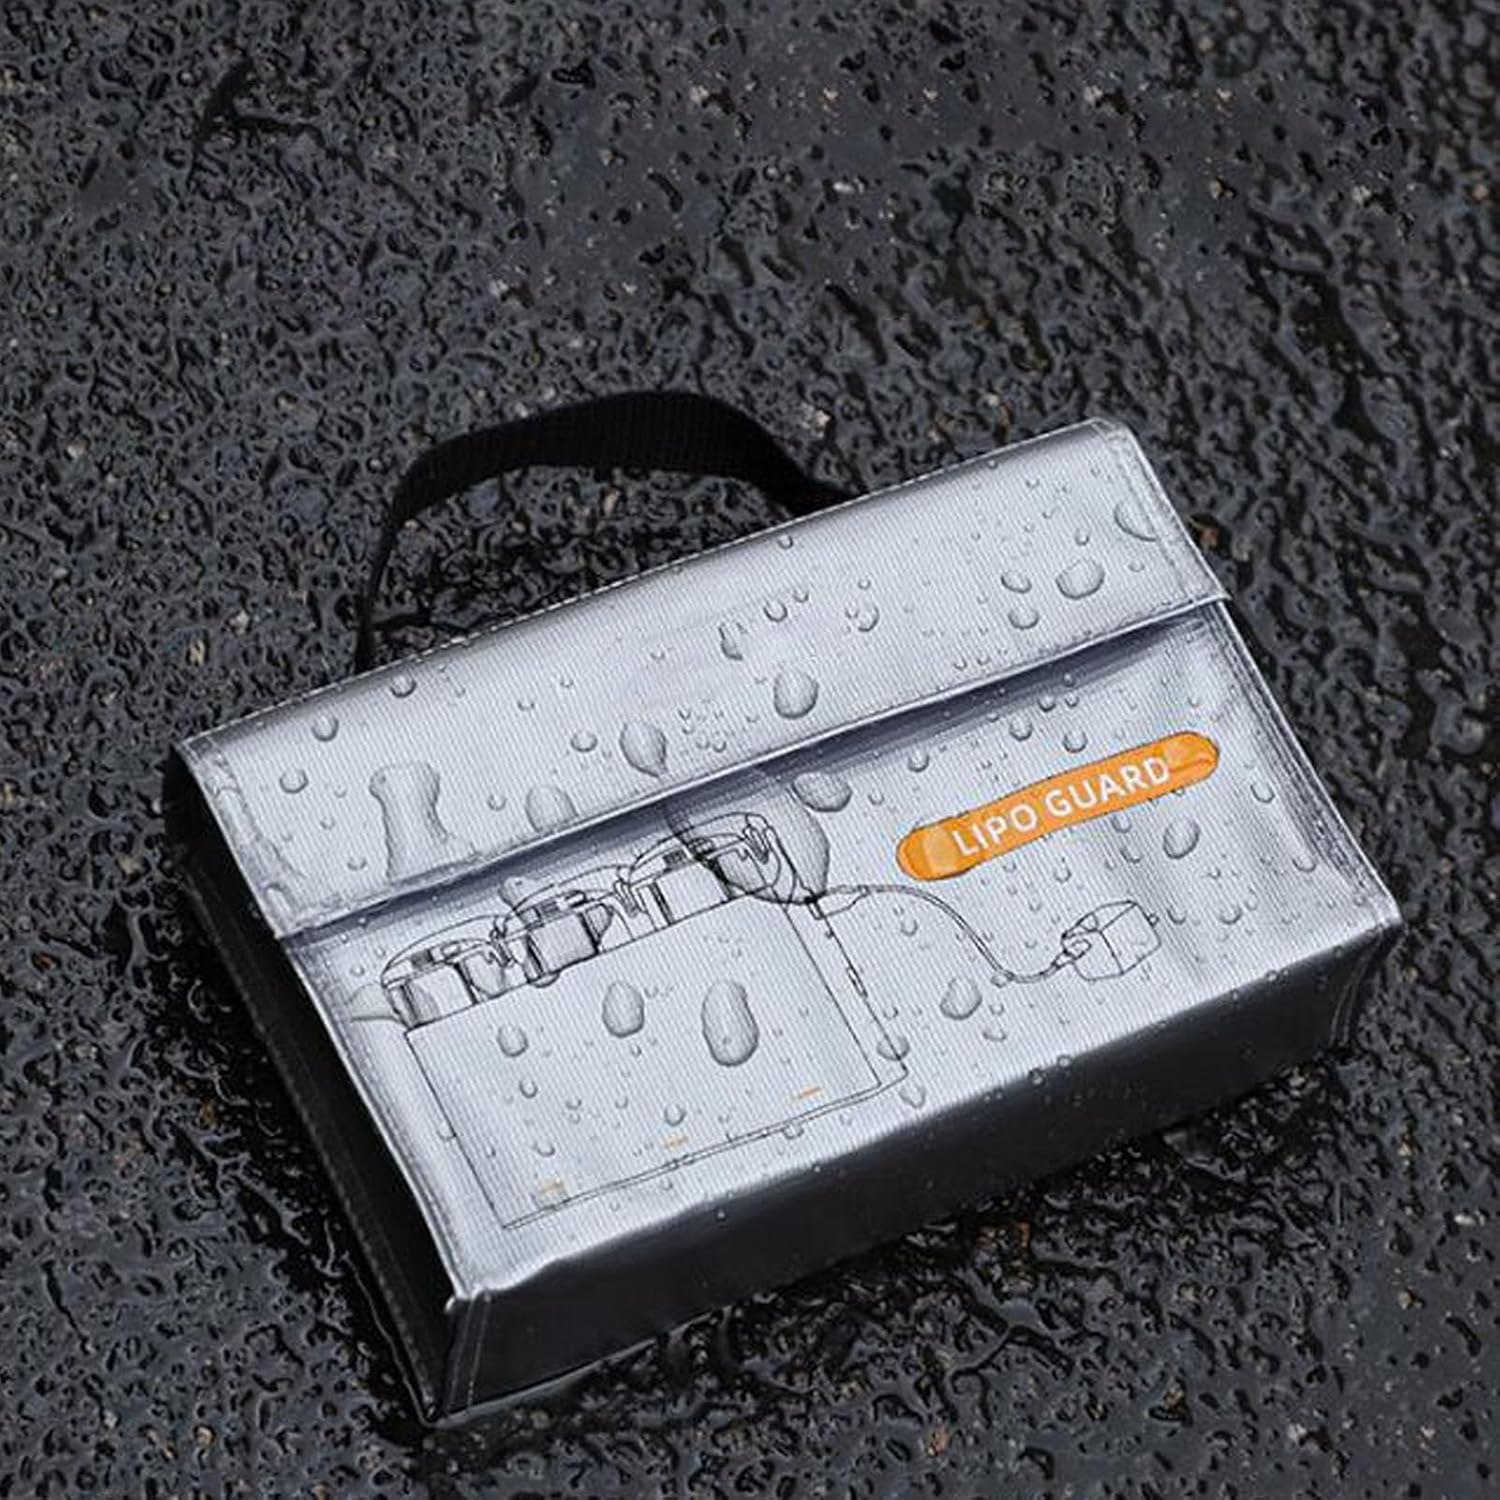 LIPO GUARD